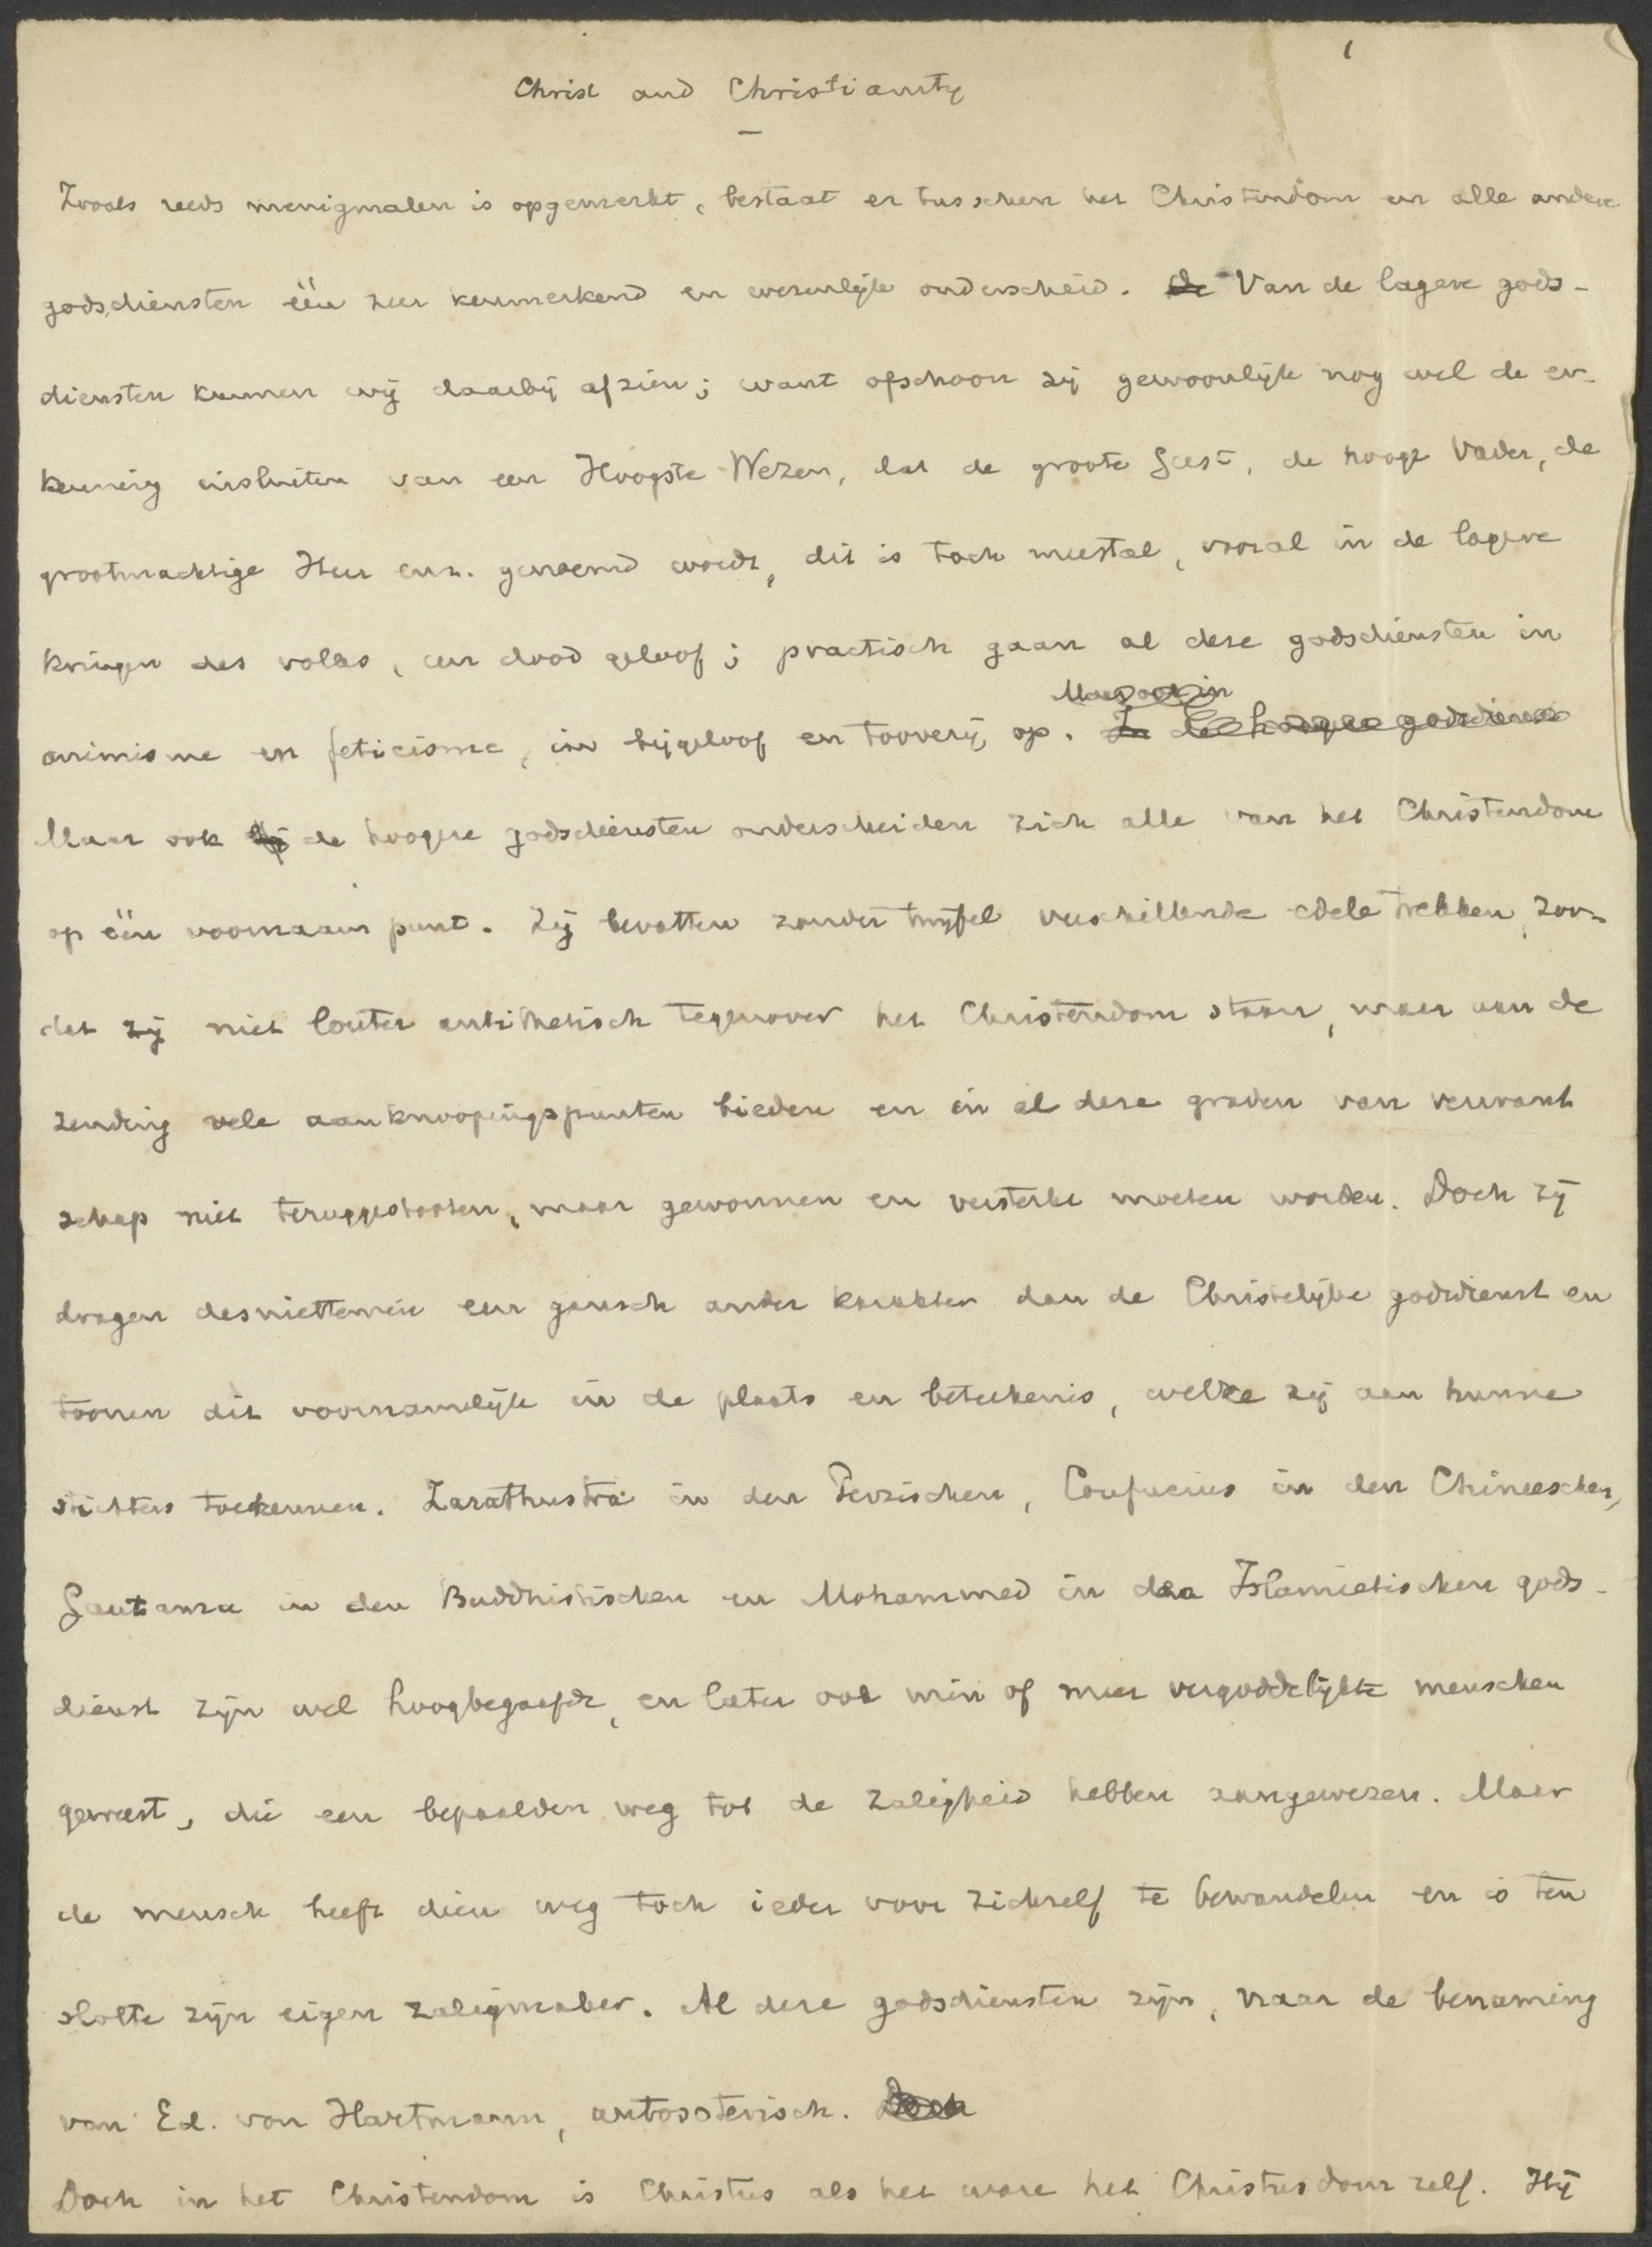 1
Christ and Christianity
Zooals reeds menigmalen is opgemerkt, bestaat er tusschen het Christendom en alle andere
godsdiensten één zeer kenmerkend en wezenlijk onderscheid. De Van de lagere gods-
diensten kunnen wij daarbij afzien; want ofschoon zij gewoonlijk nog wel de er-
kenning insluiten van een Hoogste Wezen, dat de groote Geest, de hooge Vader, de
grootmachtige Heer enz. genoemd wordt, dit is toch meestal, vooral in de lagere
kringen des volks, een dood geloof; practisch gaan al deze godsdiensten in
Maar ook in
animisme en feticisme, in bijgeloof en tooverij op. In de hoogere godsdienst
Maar ook bij de hoogere godsdiensten onderscheiden zich alle van het Christendom
op één voornaam punt. Zij bevatten zonder twijfel verschillende edele trekken, zoo-
dat zij niet louter antithetisch tegenover het Christendom staan, maar aan de
zending vele aanknoopingspunten bieden en in al deze graden van verwant
schap niet teruggestooten, maar gewonnen en versterkt moeten worden. Doch zij
dragen desniettemin een gansch ander karakter dan de Christelijke godsdienst en
toonen dit voornamelijk in de plaats en beteekenis, welke zij aan hunne
stichters toekennen. Zarathustra in den Perzischen, Confucius in den Chineeschen,
Gautama in den Buddhistischen en Mohammed in den Islamietischen gods-
dienst zijn wel hoogbegaafde, en later ook min of meer vergoddelijkte menschen
geweest, die een bepaalden weg tot de zaligheid hebben aangewezen. Maar
de mensch heeft dien weg toch ieder voor zichzelf te bewandelen en is ten
slotte zijn eigen zaligmaker. Al deze godsdiensten zijn, naar de benaming
van Ed. von Hartmann, autosoterisch. Doch
Doch in het Christendom is Christus als het ware het Christusdom zelf. Hij